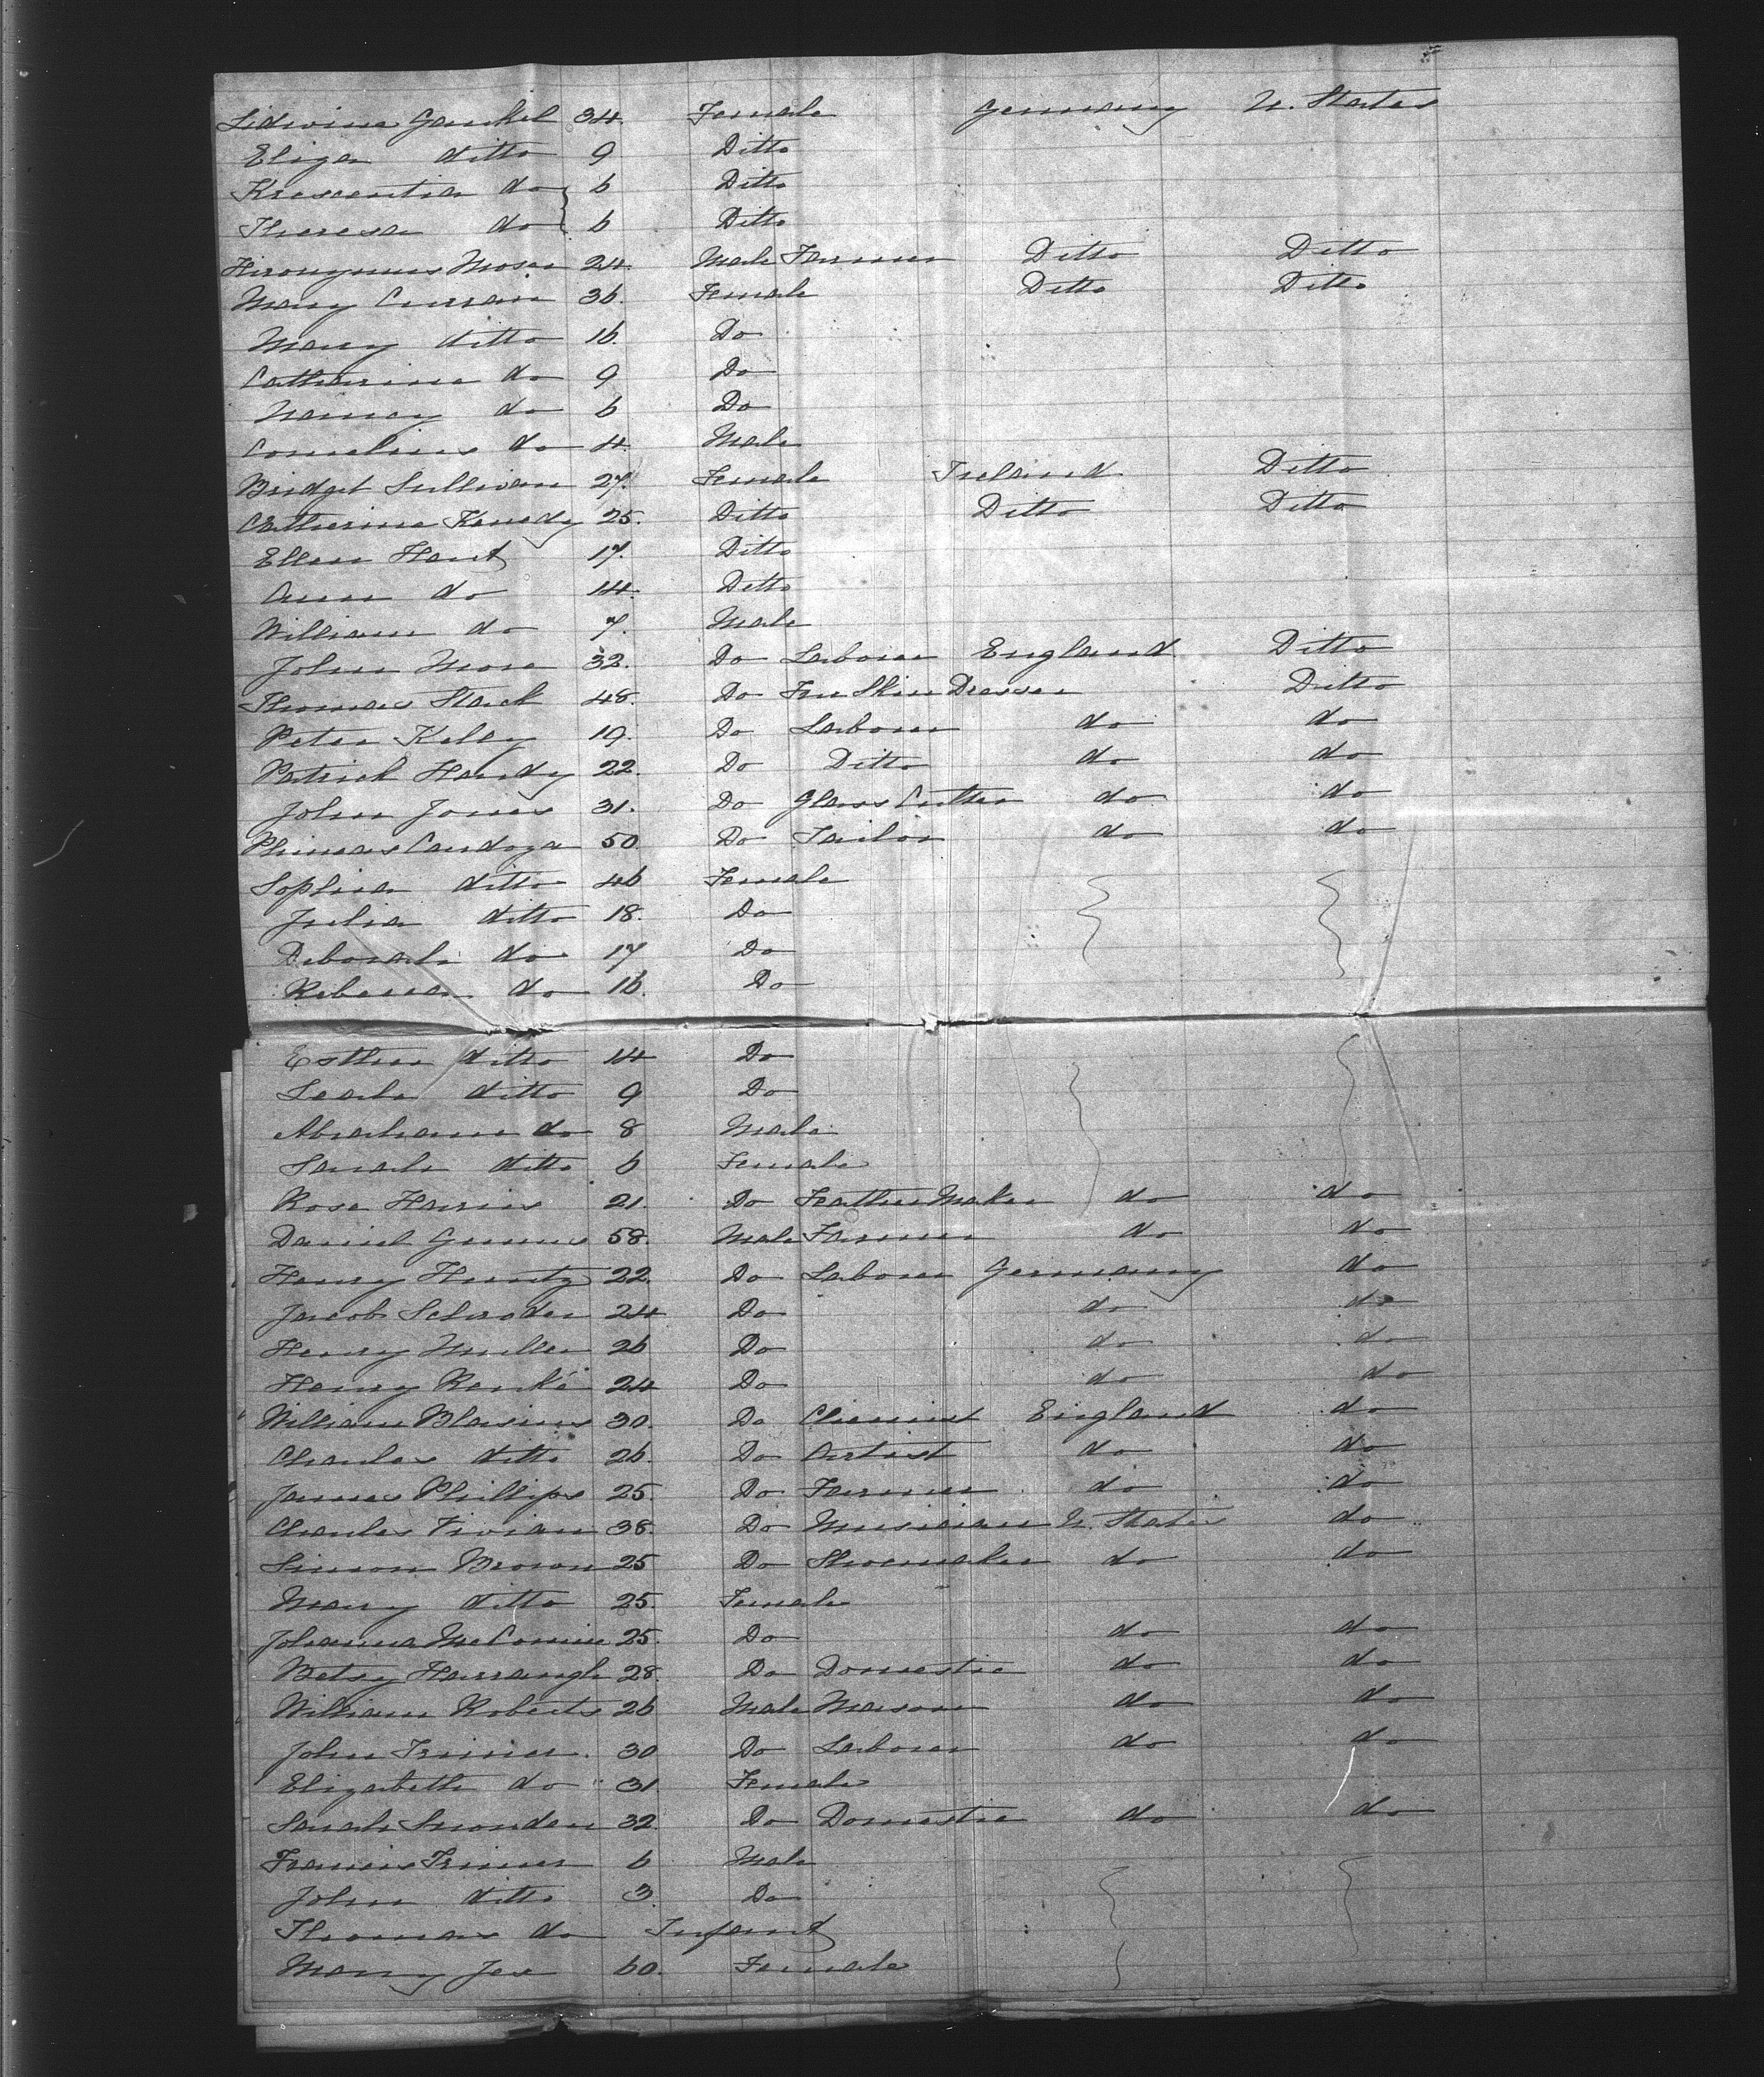 Lidwina Gankel 34. Female Germany U. States
Eliza ditto 9 Ditto
Krescentia do 6 Ditto
Theresa do 6 Ditto
Hironymus Moser 24. Male Farmer Ditto Ditto
Mary Curran 36. Female Ditto Ditto
Mary ditto 16. Do
Catharine do 9 Do
Nancy do 6 Do
Cornelius do 4. Male
Bridget Sullivan 27. Female Ireland Ditto
Catherine Kenedy 25. Ditto Ditto Ditto
Ellen Hant 17. Ditto
Ann do 14. Ditto
William do 7. Male
John More 32. Do Laborer England Ditto
Thomas Stack 48. Do Fur Skin Dresser Ditto
Peter Kelly 19. Do Laborer do do
Patrick Handy 22. Do Ditto do do
John Jones 31. Do Glass Cutter do do
Phineas Cardoza 50 Do Tailor do do
Sophia ditto 46 Female
Julia ditto 18. Do
Deborah do 17 Do
Rebecca do 16. Do
Esther ditto 14 Do
Leah ditto 9 Do
Abraham do 8 Male
Sarah ditto 6 Female
Rose Harris 21. Do Feather Maker do do
Daniel 58. Male Farmer do do
Henry Huntz 22. Do Laborer Germany do
Jacob Schroder 24 Do do do
Henry Muller 26 Do do do
Henry Ranké 24 Do do do
William Blasius 30. Do Chemist England do
Charles ditto 26. Do Artist do do
James Phillips 25. Do Farmer do do
Charles Vivian 38. Do Musician U. States do
Simon Brown 25 Do Shoemaker do do
Mary ditto 25. Female
Johanna 25. Do do do
Betsy Harraugh 28. Do Domestic do do
William Roberts 26 Male Mason do do
John Trimer. 30 Do Laborer do do
Elizabeth do 31 Female
Sarah Snowden 32. Do Domestic do do
Francis Trimer 6 Male
John ditto 3 Do
Thomas do Infant
Mary Jex 60. Female